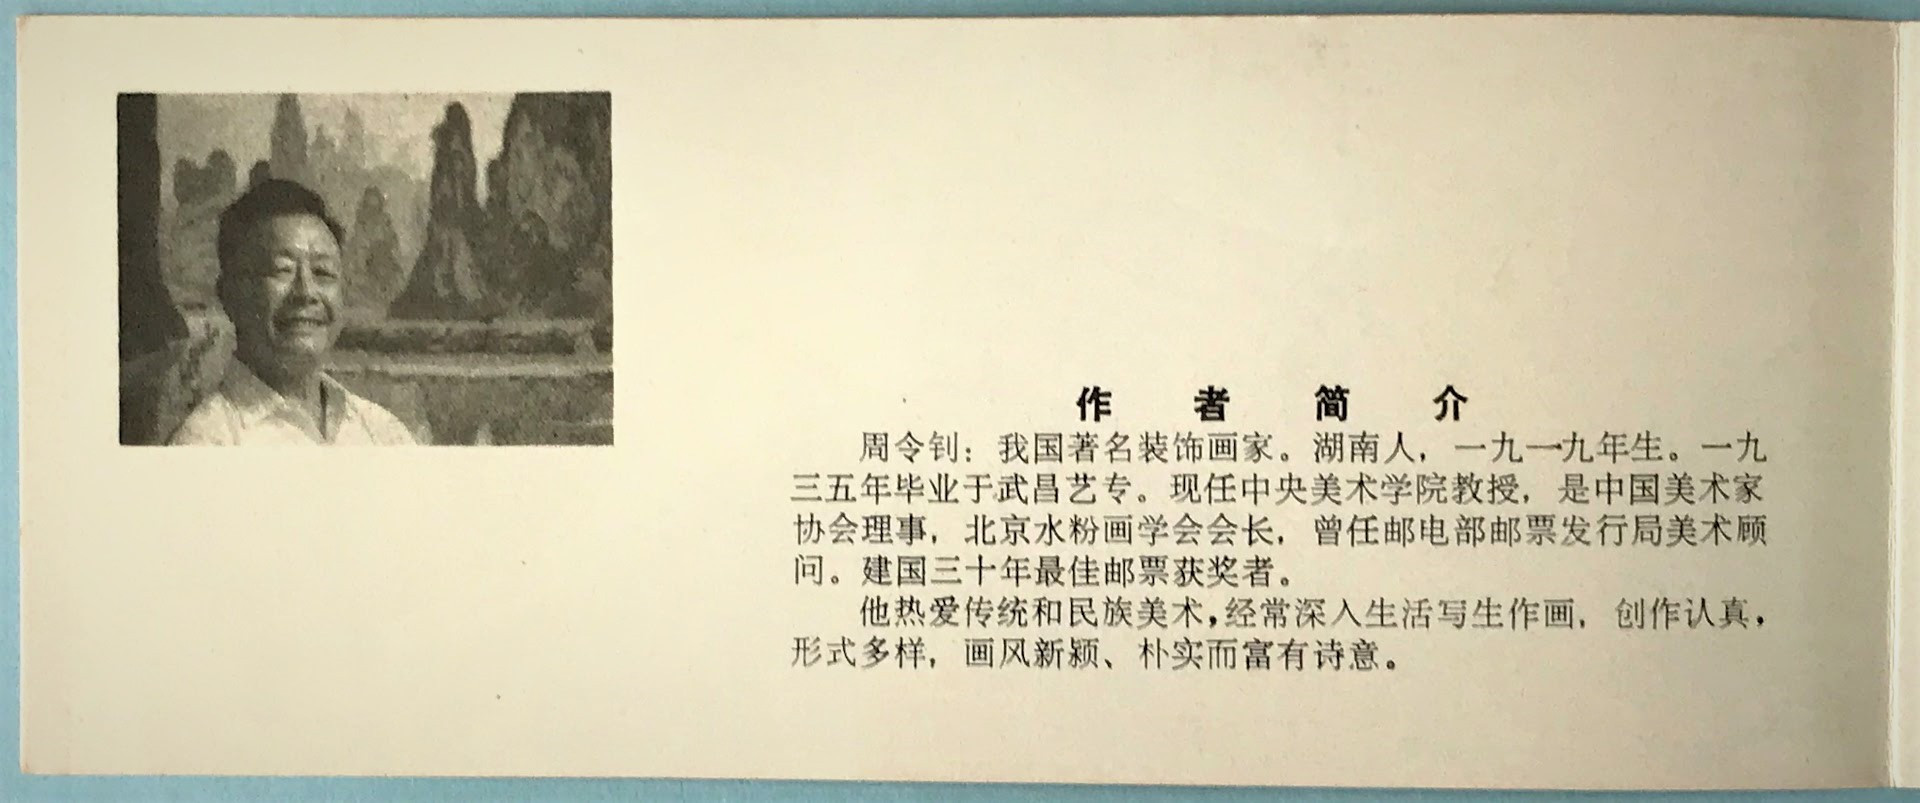 作者简介
周令钊：我国著名装饰画家。湖南人，一九一九年生。一九
三五年毕业于武昌艺专。现任中央美术学院教授，是中国美术家
协会理事，北京水粉画学会会长，曾任邮电部邮票发行局美术顾
问。建国三十年最佳邮票获奖者。
他热爱传统和民族美术，经常深入生活写生作画，创作认真，
形式多样，画风新颖、朴实而富有诗意。